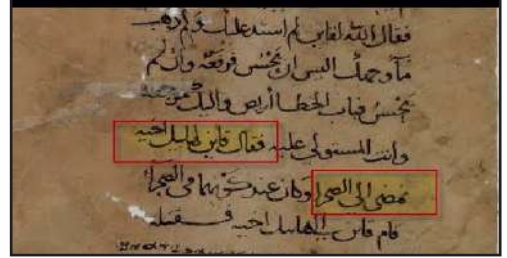 فقال الله لقاين لم اشتد عليك ولم ذهب
ماؤ وجهك اليس ان تحسن فرفعه وان لم
تحسن فباب الخطا رابص واليك مرجعه
وانت المستولي عليه فقال قاين لهابيل اخيه
نمضي الي الصحرا وكان عند كونهما في الصحرا
قام قاين الهابيل اخيه فقتله